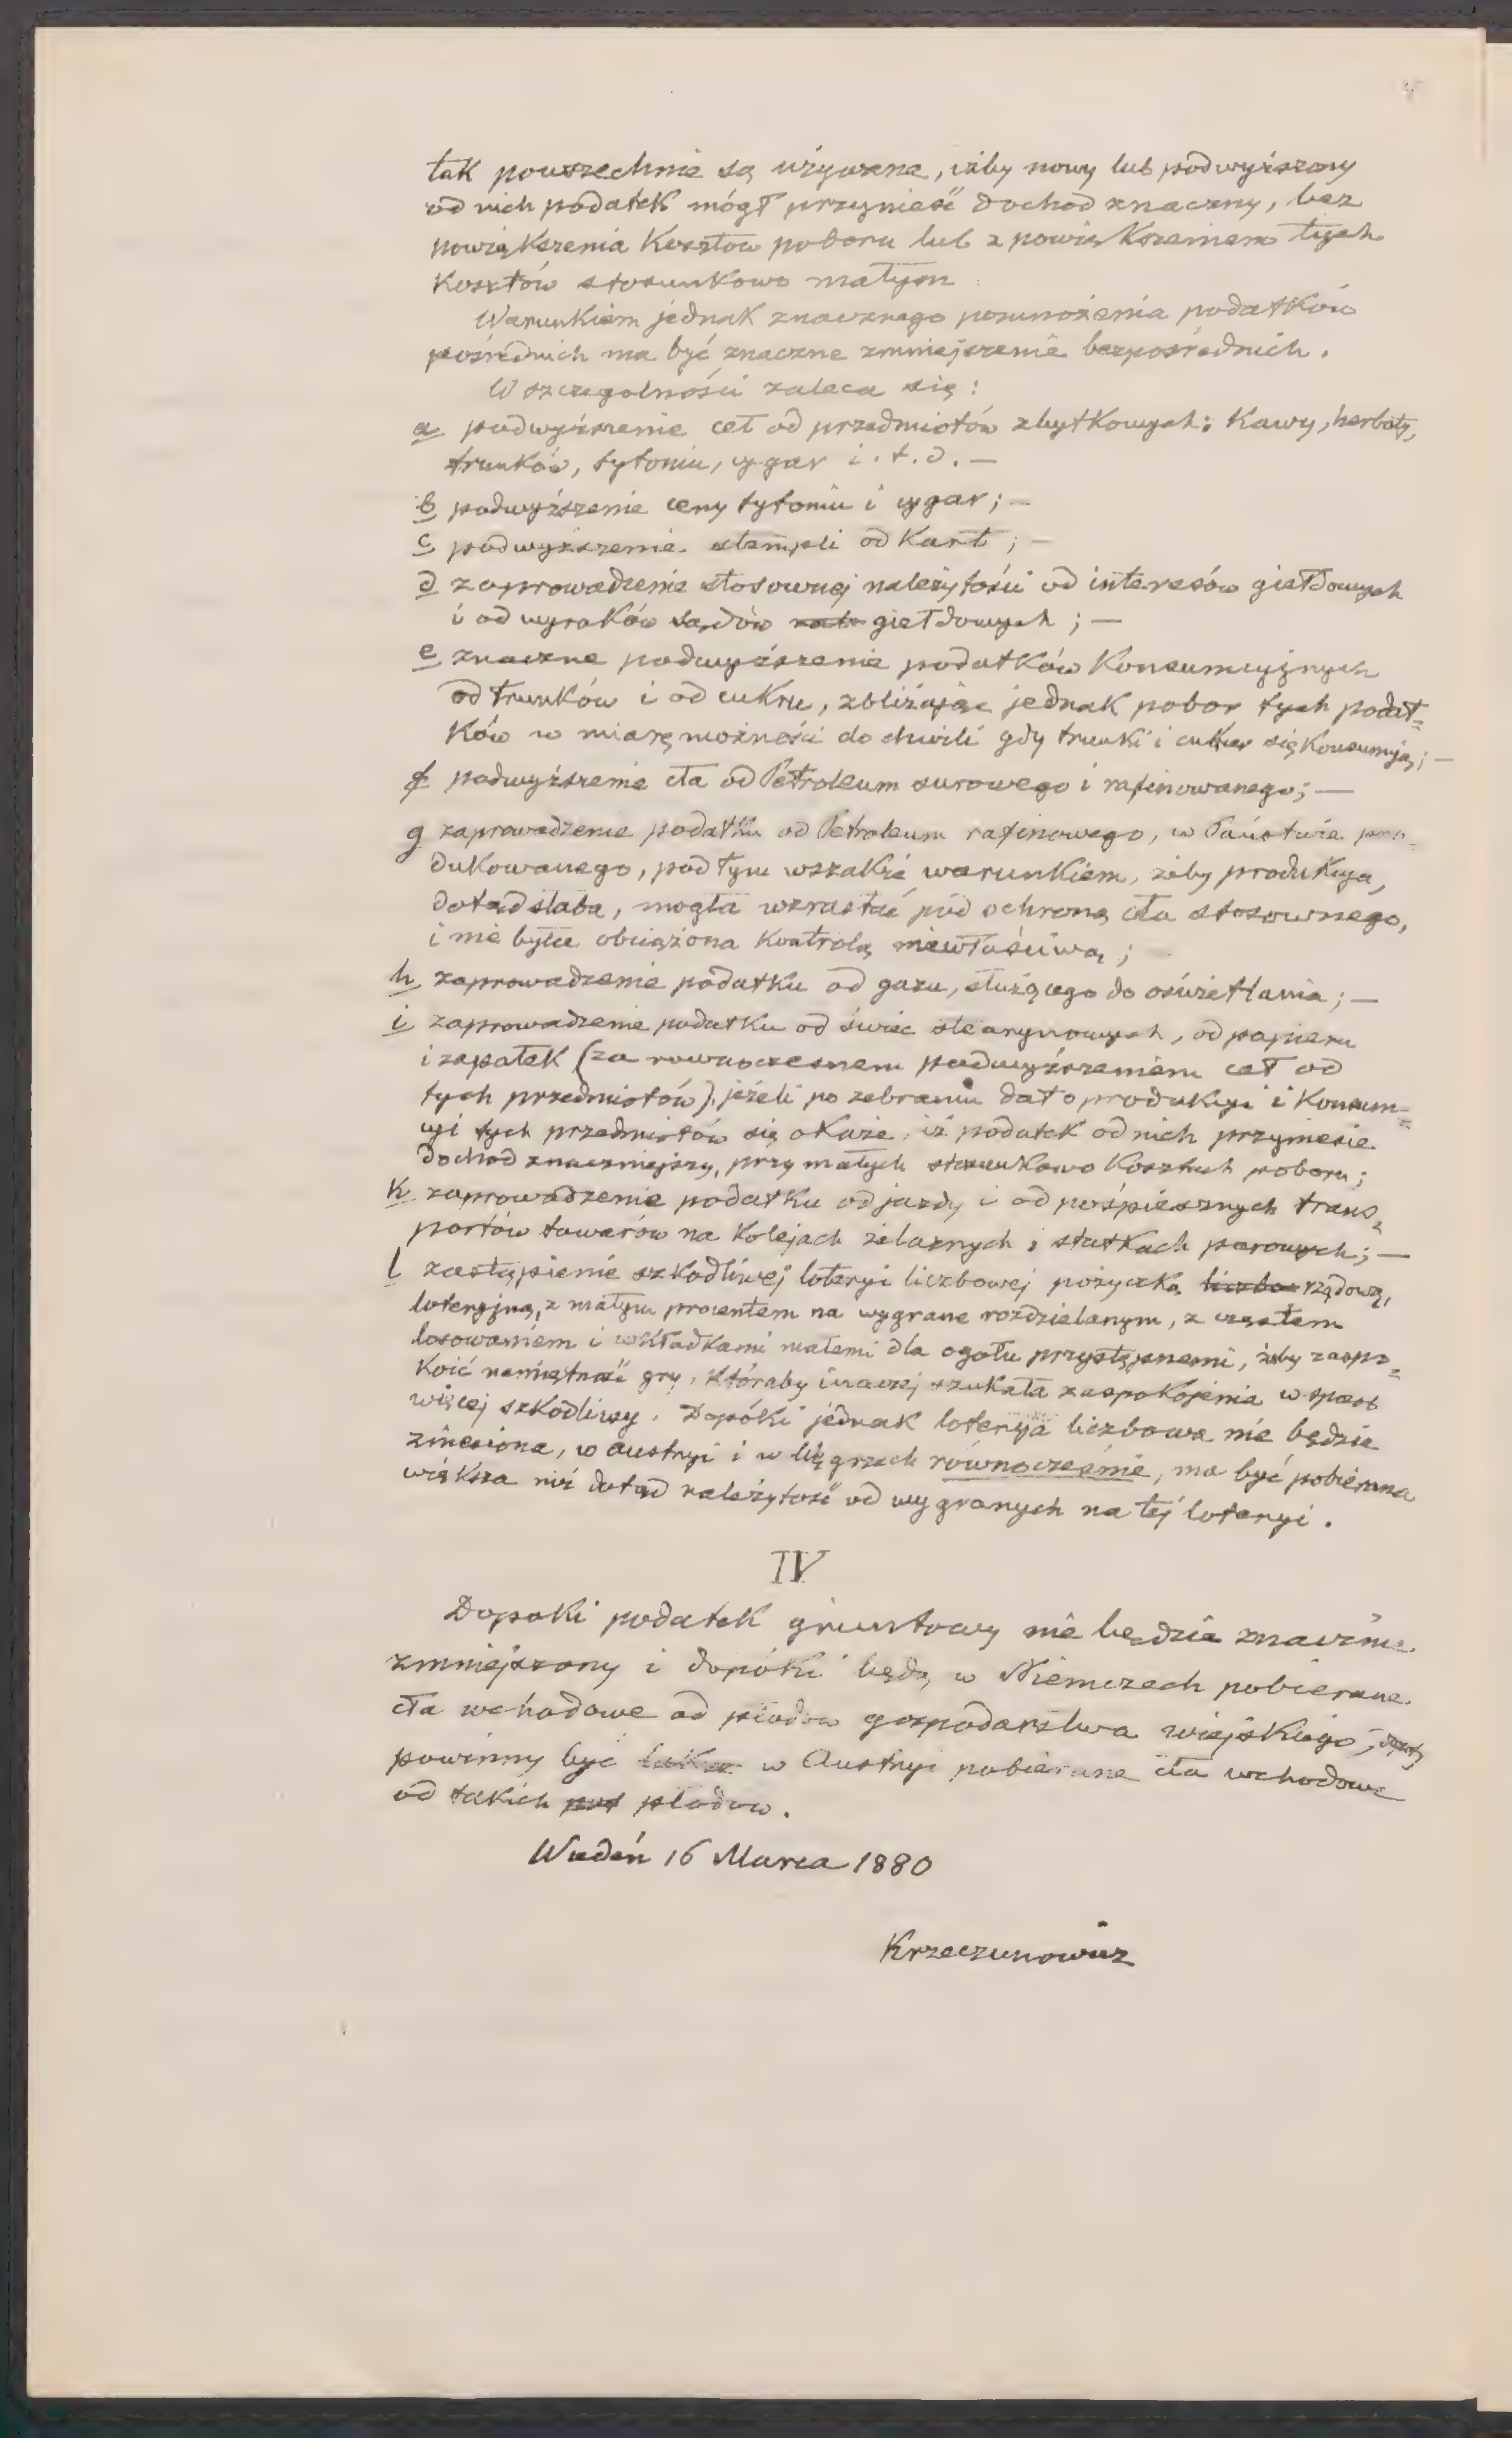 tak powszechnie są używane, iżby nowy lub podwyższony
od nich podatek mógł przynieść dochod znaczny, bez
powiększenia Kosztów poboru lub z powiększeniem tych
Kosztów stosunkowo małym
Warunkiem jednak znacznego pomnożenia podatków
pośrednich ma być znaczne zmniejszenie bezpośrednich.
W szczegolności zaleca się:
a podwyższenie ceł od przedmiotów zbytkowych: Kawy, herbaty,
trunków, tytoniu, cygar i.t.d. —
b podwyższenie ceny tytoniu i cygar; —
c podwyższenie stempli od Kart; —
d zaprowadzenie stosownej należytości od interesów giełdowych
i od wyroków sądów giełdowych; —
e znaczne podwyższenie podatków Konsumcyjnych
od trunków i od cukru, zbliżając jednak pobor tych podat=
Ków w miarę możności do chwili gdy trunki i cukier się Konsumują; —
f podwyższenie cła od Petroleum surowego i rafinowanego; —
g zaprowadzenie podatku od Petroleum rafinowego, w Państwie pro=
dukowanego, pod tym wszakże warunkiem, żeby produkcya,
dotąd słaba, mogła wzrastać pod ochroną cła stosownego,
i nie była obciążona Kontrolą niewłaściwą;
h zaprowadzenie podatku od gazu, służącego do oświetlania; —
i zaprowadzenie podatku od świec stearynowych, od papieru
i zapałek (za rownoczesnem podwyższeniem ceł od
tych przedmiotów), jeżeli po zebraniu dat o produkcyi i Konsum=
cyi tych przedmiotów się okaże, iż podatek od nich przyniesie
dochod znaczniejszy, przy małych stosunkowo Kosztach poboru;
k zaprowadzenie podatku od jazdy i od pośpiesznych trans=
portów towarów na Kolejach żelaznych i statkach parowych; —
l zastąpienie szkodliwej loteryi liczbowej pożyczką liczbo rządową,
loteryjną, z małym procentem na wygrane rozdzielanym, z częstem
losowaniem i wkładkami małemi dla ogołu przystępnemi, żeby zaspo=
Koić namiętność gry, Któraby inaczej szukała zaspokojenia w sposob
więcej szkodliwy. Dopóki jednak loterya liczbowa nie będzie
zniesiona, w Austryi i w Węgrzech równocześnie, ma być pobierana
większa niż dotąd należytość od wygranych na tej loteryi.
IV
Dopoki podatek gruntowy nie będzie znacznie
zmniejszony i dopóki będą w Niemczech pobierane
cła wchodowe od płodow gospodarstwa wiejskiego, dopoty
powinny być także w Austryi pobierane cła wchodowe
od takich płodow.
Wiedeń 16 Marca 1880
Krzeczunowicz